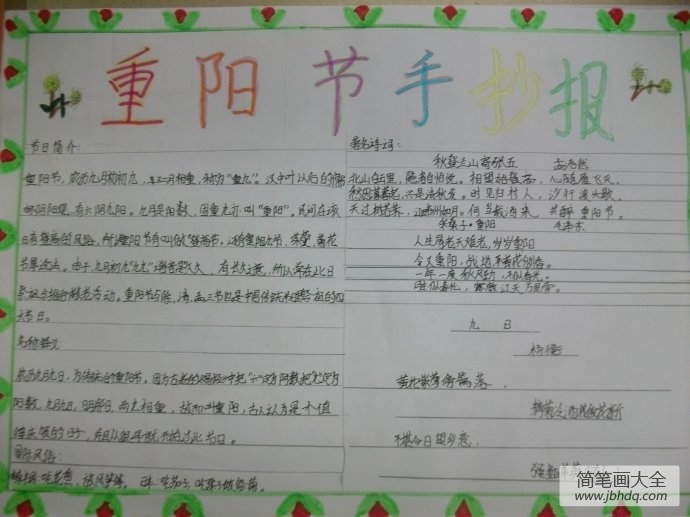 重阳节手抄报
节日简介:
重阳节,农历九月初九,二九相重,称为"重九"。汉中叶以后的儒
阴阳观,有六阴九阳。九月是阳数,固重九亦叫"重阳"。民间在该
日有登高的风俗,所以重阳节有叫做"登高节",还有重阳九节、茱萸、菊花
节等说法。由于九月初九"九九"谐音是久久,有长久之意,所以常在此日
祭祖与推行敬老活动。重阳节与除、清、盂三节也是中国传统节日祭祖的四
大节日。
名称释义
农历九月九日,为传统的重阳节。因为古老的《易经》中把"六"定为阴数,把"九"定为
阳数,九月九日,日月并阳,两九相重,故而叫重阳,古人认为是个值
得庆贺的日子,并且从很早就开始过此节日。
国外风俗:
韩国:吃花煎、放风筝等。 日本:吃茄子、吃栗子
著名诗词:
秋登兰山寄张五 孟浩然
北山白云里,隐者自怡悦。相望始登高,心随雁飞灭。
愁因薄暮起,兴是清秋发。时见归村人,沙行渡头歇。
天边树若荠,江畔洲如月。何当载酒来,共醉重阳节。
采桑子·重阳 毛泽东
人生易老天难老,岁岁重阳
今又重阳,战地黄花分外香。
一年一度秋风劲,不似春光。
胜似春光,寥廓江天万里霜。
九 日
杨衡
黄花紫菊傍篱落,
摘菊泛酒爱芳新
不堪今日望乡意,
强插茱萸
简笔画大全
www.jbhdq.com